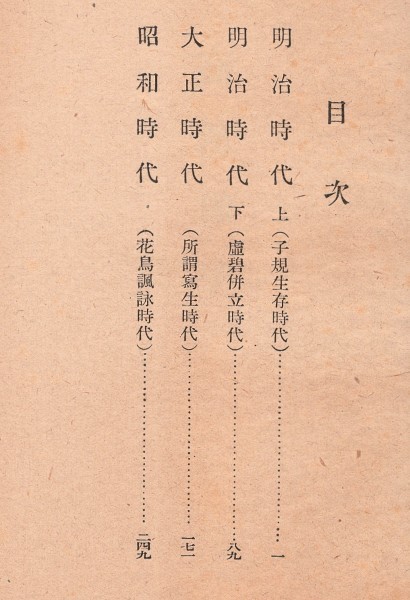 目次
明治時代 上（子規生存時代）………………………一
明治時代 下（虛碧併立時代）………………………八九
大正時代（所謂寫生時代）………………………一七一
昭和時代（花鳥諷詠時代）………………………二四九